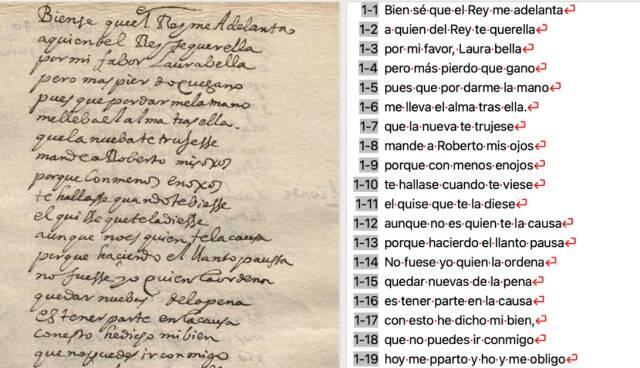 Biense que el Rey me Adelanta
aquien del Rey sequerella
por mi fabor Laurabella
pero mas pierdo que gano
pues que por dar mela mano
mellebael alma trasella.
quela nuebate trujesse
mandea Roberto mis oxos
porque con menos enoxos
te hallasse quando te biesse
el quisse quete la diesse
aunque noes quien tela causa
porque haciendo el llanto paussa
no fuesse yo quien la ordena
quedar nuebas dela pena
es tener parte en la causa
con esto hedicho mi bien
que no puedes ir conmigo
1-1 Bien sé que el Rey me adelanta
1-2 a quien del Rey te querella
1-3 por mi favor, Laura bella
1-4 pero más pierdo que gano
1-5 pues que por darme la mano
1-6 me lleva el alma tras ella.
1-7 que la nueva te trujese
1-8 mande a Roberto mis ojos
1-9 porque con menos enojos
1-10 te hallase cuando te viese
1-11 el quise que te la diese
1-12 aunque no es quien te la causa
1-13 porque hacierdo el llanto pausa
1-14 No fuese yo quien la ordena
1-15 quedar nuevas de la pena
1-16 es tener parte en la causa
1-17 con esto he dicho mi bien,
1-18 que no puedes ir conmigo
1-19 hoy me pparto y ho y me obligo